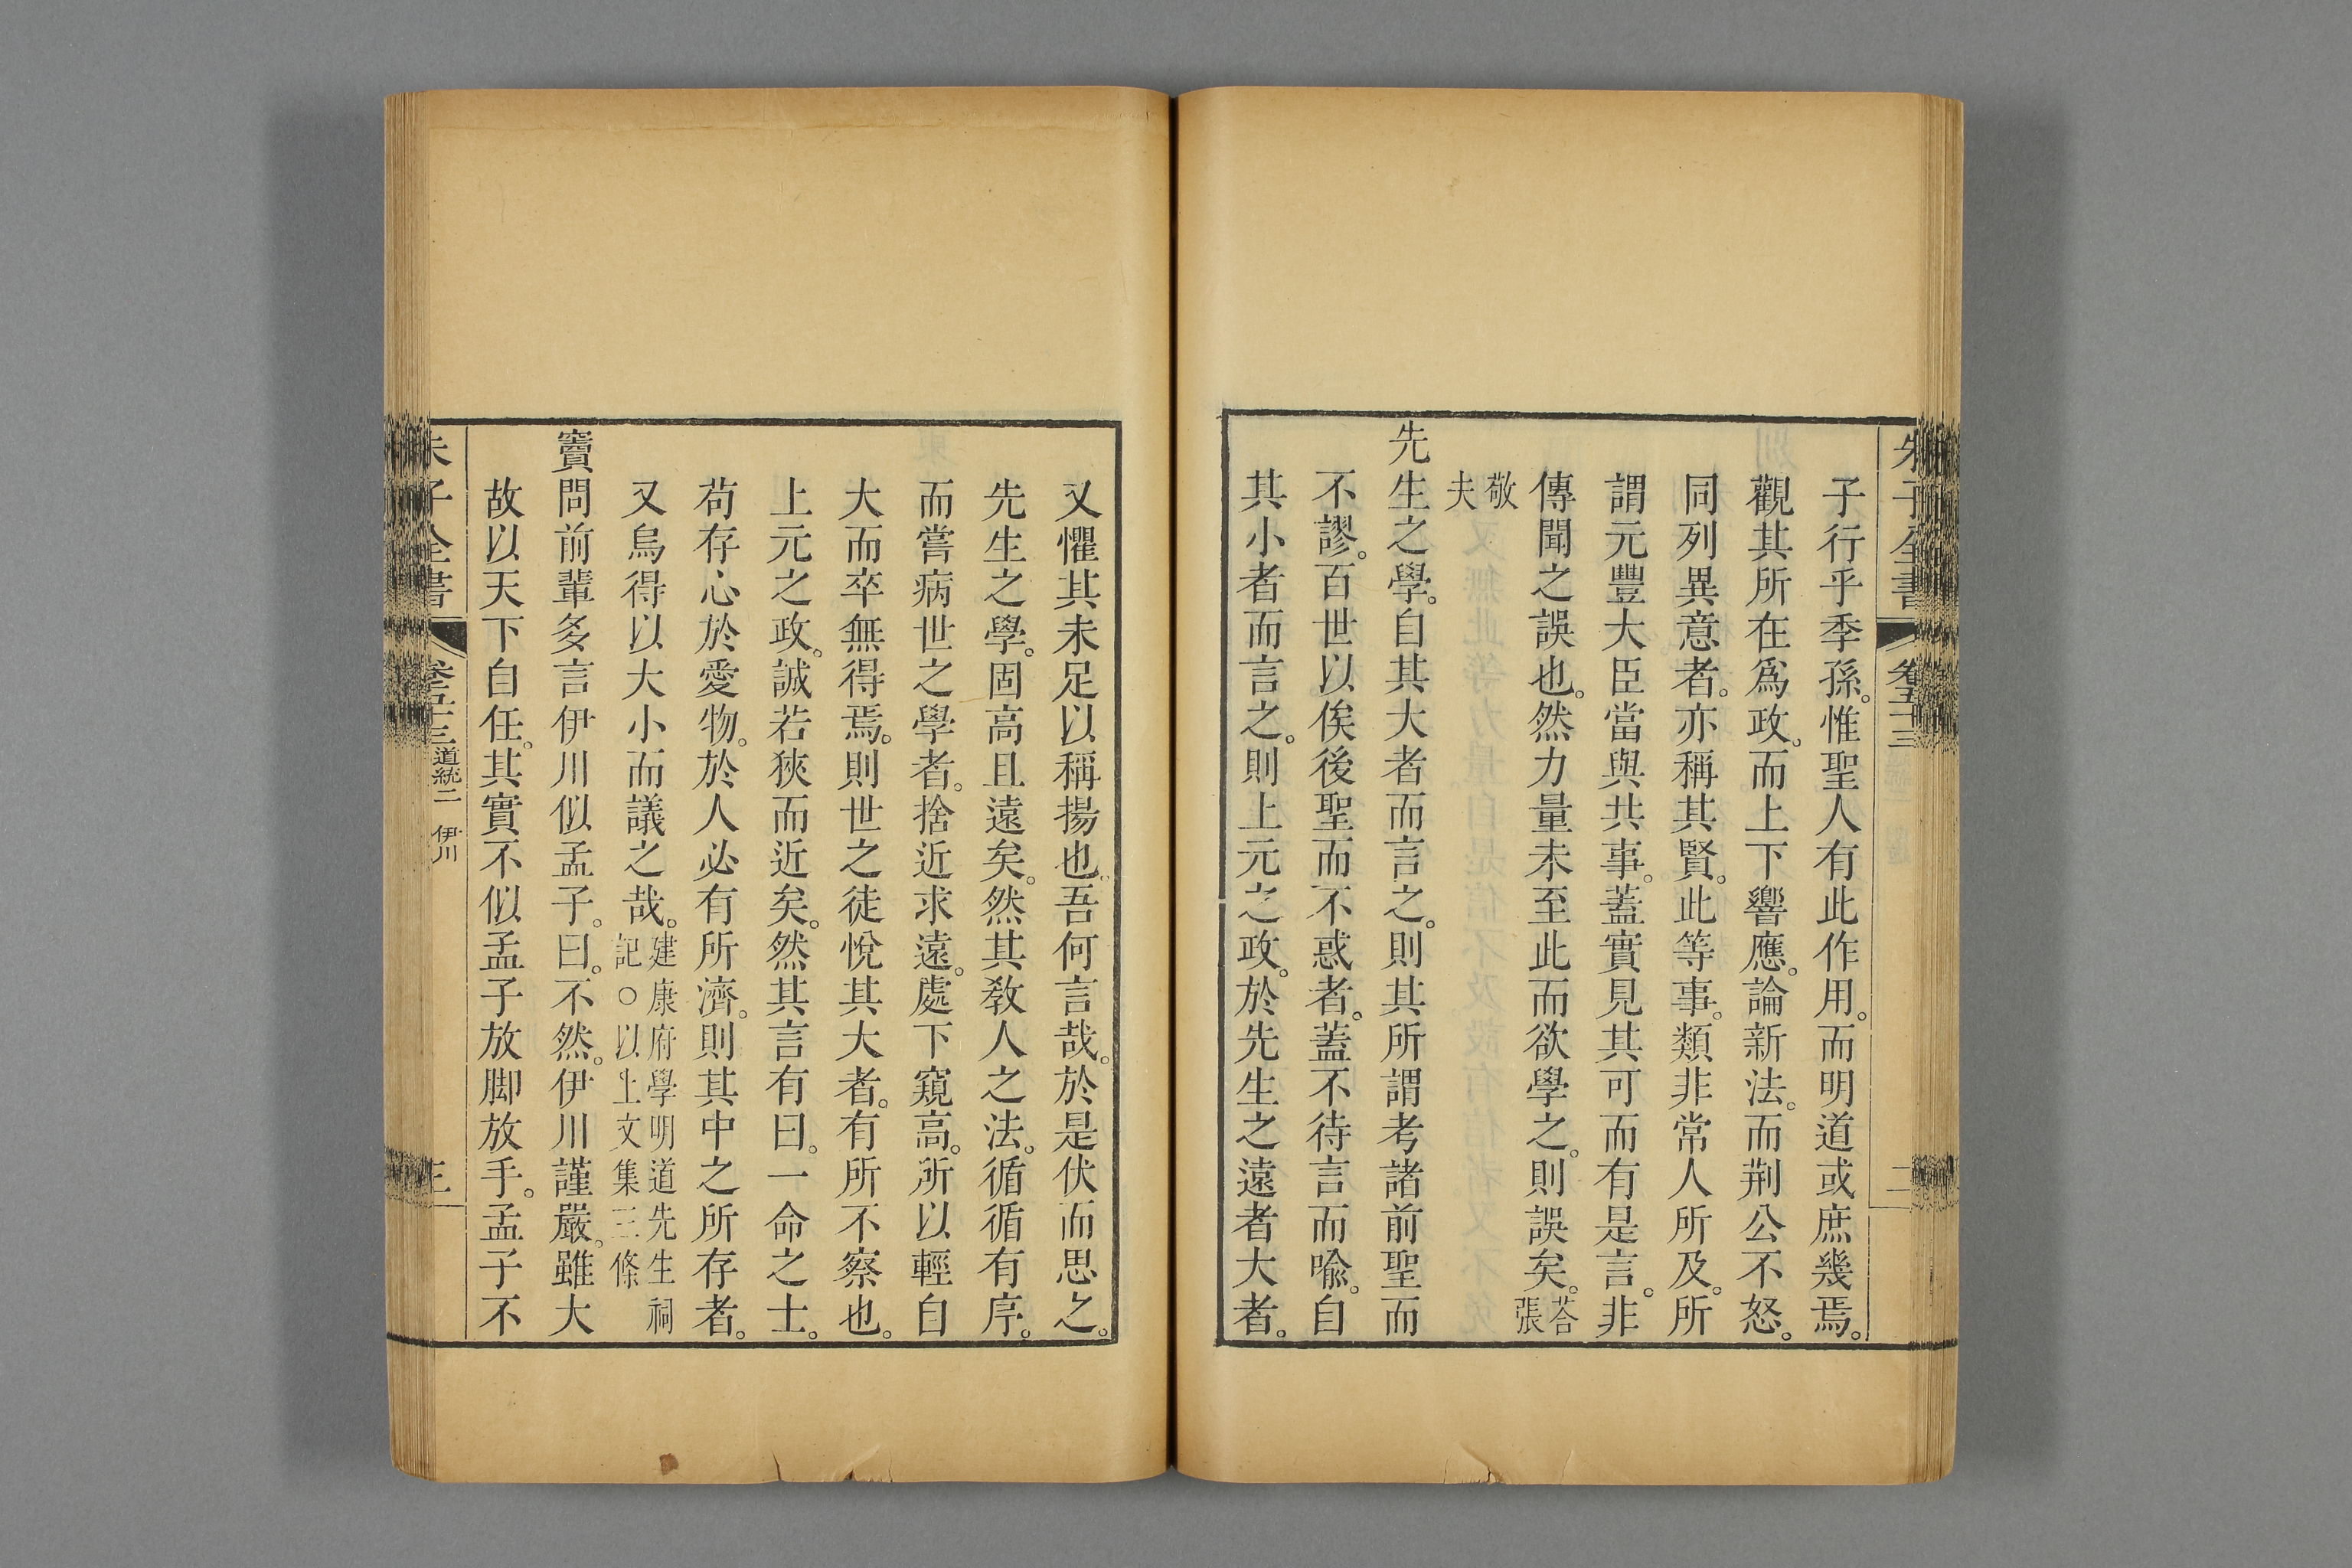 朱子全書 卷五十三 二
子行乎季孫。惟聖人有此作用。而明道或庶幾焉。
觀其所在爲政。而上下響應。論新法。而荆公不怒。
同列異意者。亦稱其賢。此等事。類非常人所及。所
謂元豐大臣當與共事。蓋實見其可而有是言。非
傳聞之誤也。然力量未至此而欲學之。則誤矣。荅張
敬夫
先生之學。自其大者而言之。則其所謂考諸前聖而
不謬。百世以俟後聖而不惑者。蓋不待言而喻。自
其小者而言之。則上元之政。於先生之遠者大者。
又懼其未足以稱揚也。吾何言哉。於是伏而思之。
先生之學。固高且遠矣。然其教人之法。循循有序。
而嘗病世之學者。捨近求遠。處下窺高。所以輕自
大而卒無得焉。則世之徒悅其大者。有所不察也。
上元之政。誠若狹而近矣。然其言有曰。一命之士。
苟存心於愛物。於人必有所濟。則其中之所存者。
又烏得以大小而議之哉。建康府學明道先生祠
記○以上文集三條
竇問前輩多言伊川似孟子。曰。不然。伊川謹嚴。雖大
故以天下自任。其實不似孟子放脚放手。孟子不
朱子全書 卷五十三 道統二 伊川 三